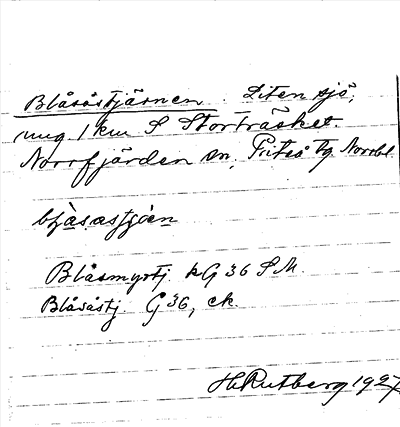 Blåsåstjärnen. Liten sjö,
ung 1 km S Storträsket.
Norrfjärden sn, Piteå tg Norrbl.
Blåsmyrtj. kG 36 SM.
Blåsåstj. G 36, ek.
H Rutberg 1927